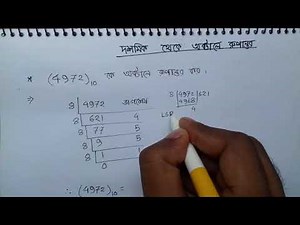 দশমিক থেকে অক্টালে রূপান্তর
* (4972)₁₀ কে অক্টালে রূপান্তর কর।
⇒ 8 | 4972 অবশেষ
8 | 621 4
8 | 77 5
8 | 9 5
8 | 1 1
0
8 | 4972 | 621
4968
4
LSD
∴ (4972)₁₀ =